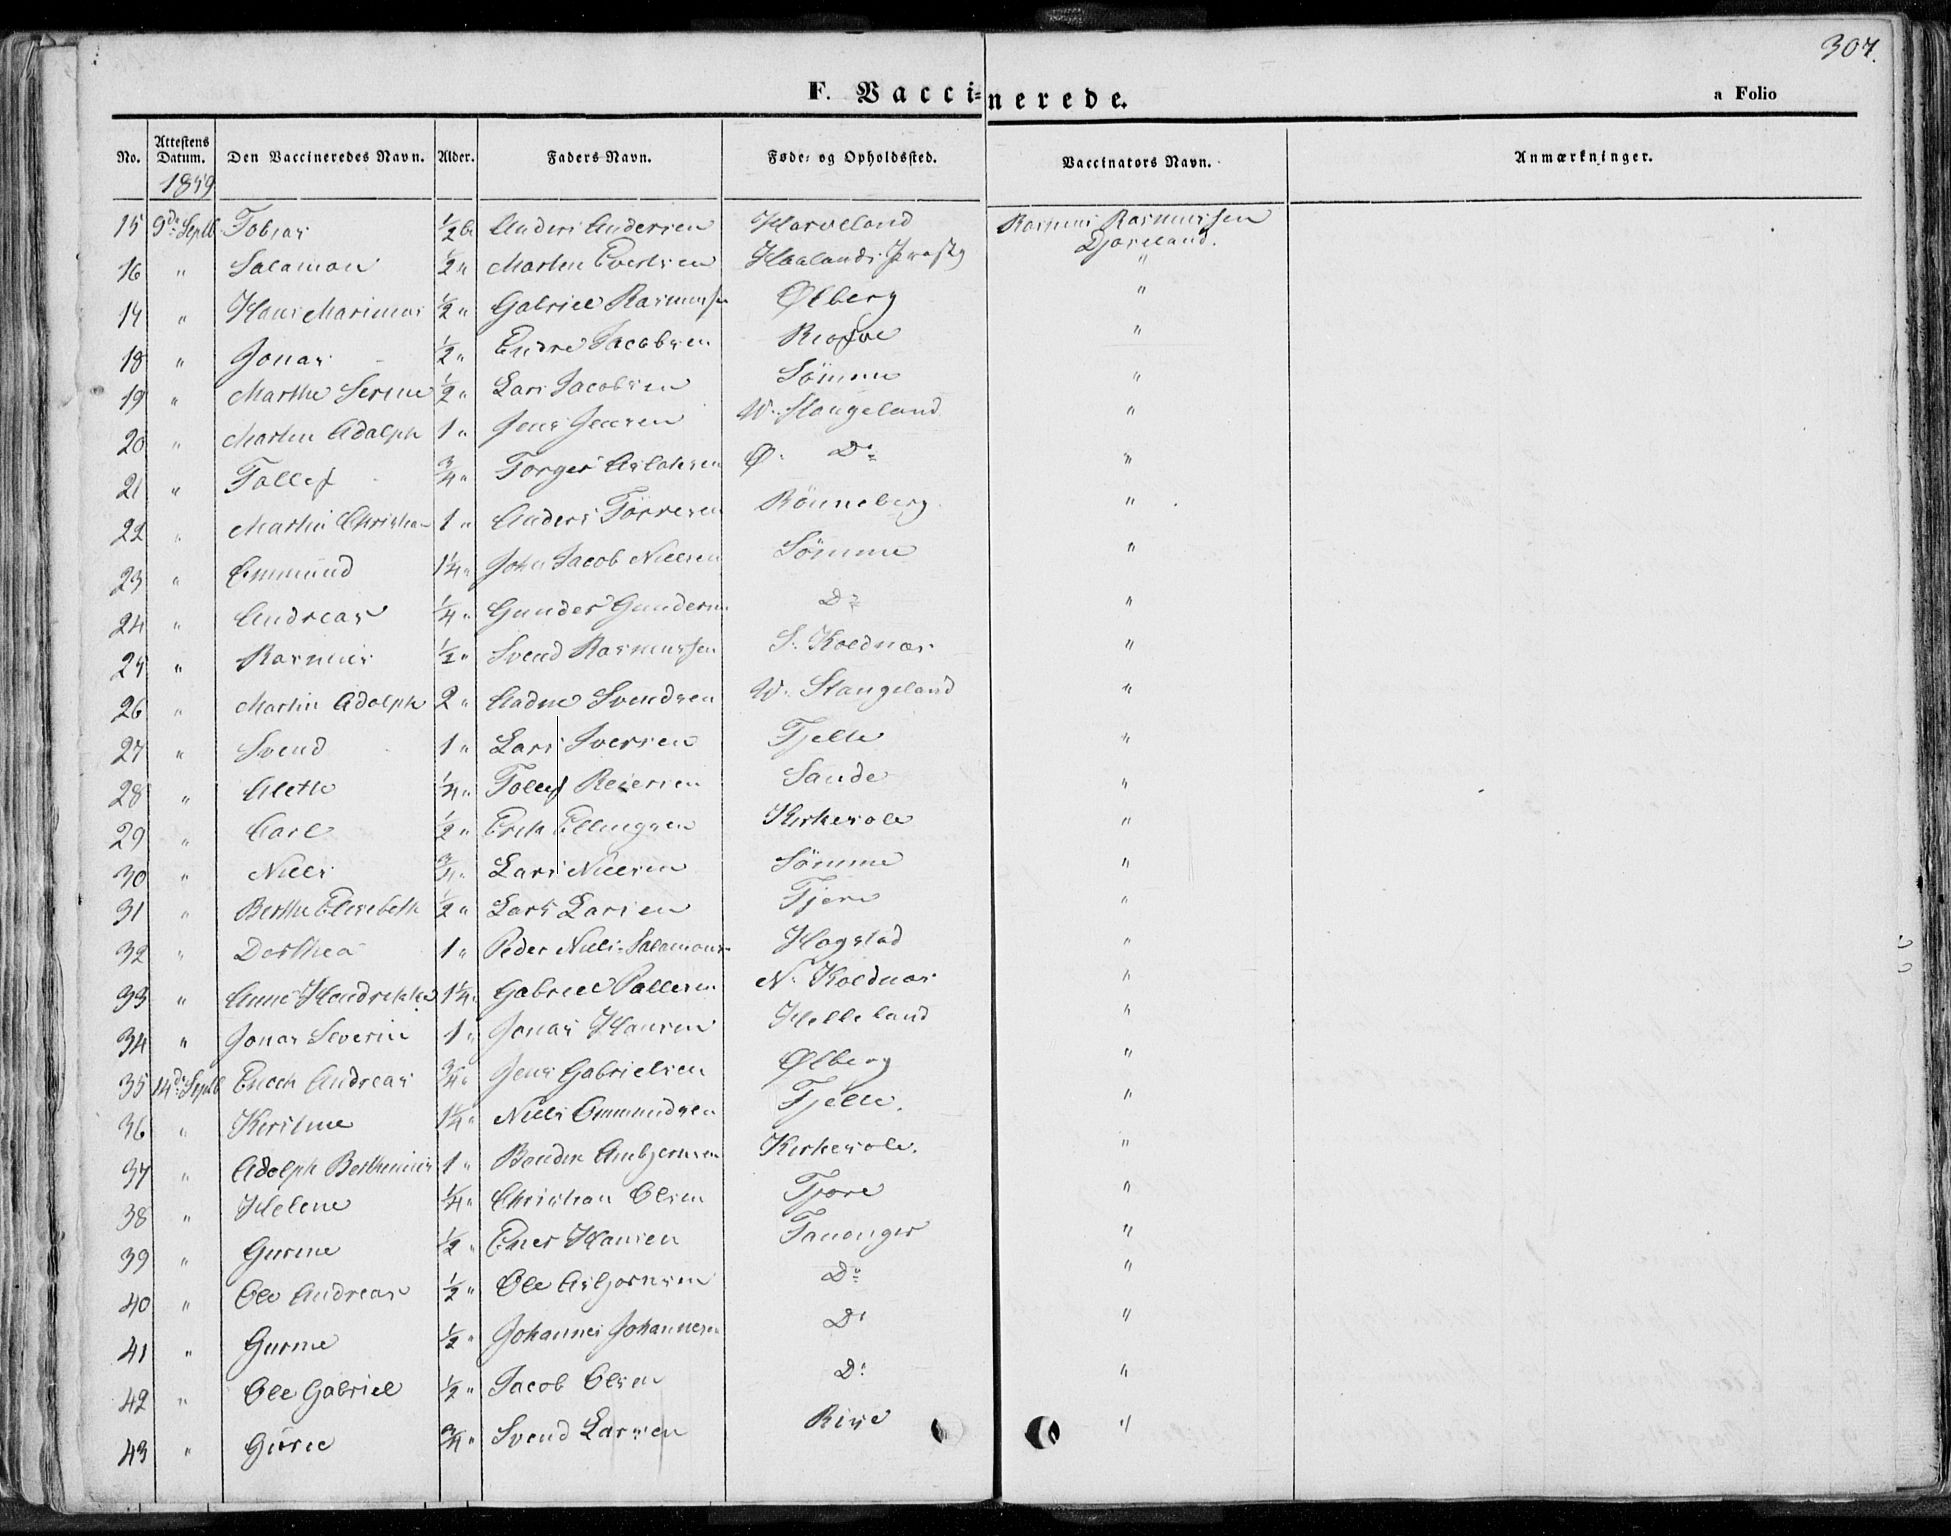 307.
F. Vaccinerede.
a Folio
No. Attestens Datum. Den Vaccineredes Navn. Alder. Faders Navn. Føde- og Opholdssted. Vaccinators Navn. Anmærkninger.
1859
15 9de Septb Tobias 1/2 Anders Andersen Harveland Rasmus Rasmussen
16 " Salamon 1/2 " Martin Evertsen Haalands "
17 " Hans Marinus 1/2 " Gabriel Rasmussen Ølberg "
18 " Jonas 1/2 " Endre Jacobsen "
19 " Marthe Serine 1/2 " Lars Jacobsen Sömme "
20 " Martin Adolph 1 " Jens Jensen W. Stangeland "
21 " Tollef 3/4 " Torger Aslaksen Ø. Do "
22 " Martin Christian 1 " Anders Törresen Rönneberg "
23 " Emmund 1 1/4 " John Jacob Nielsen Sömme "
24 " Andreas 1/4 " Gunder Gundersen Do "
25 " Rasmus 1/2 " Svend Rasmussen S. Koldnæs "
26 " Martin Adolph 2 " Aadne Svendsen W. Stangeland "
27 " Svend 1 " Lars Iversen Tjelte "
28 " Alette 1/4 " Tollef Reiersen Sande "
29 " Carl 1/2 " Erik Ellingsen Kirkesole "
30 " Niels 3/4 " Lars Nielsen Sömme "
31 " Berthe Elisebeth 1/2 " Lars Larsen Tjore "
32 " Dorthea 1 " Peder Niels Salamons. Hogstad "
33 " Anne Hendrikke 1 1/4 " Gabriel Pallesen N. Koldnæs "
34 " Jonas Severin 1 " Jonas Hansen Helleland "
35 14de Septb Enoch Andreas 3/4 " Jens Gabrielsen Ølberg "
36 " Kirstine 1 1/4 " Niels Emmundsen Tjelte. "
37 " Adolph Berthinius 1 " Asbjørnsen Kirkesole. "
38 " Helene 1/4 " Christian Olsen Tjore "
39 " Gurine 1/2 " Einer Hansen Tananger "
40 " Ole Andreas 1/2 " Ole Asbjørnsen Do "
41 " Gurine 1/2 " Johannes Johannesen Do "
42 " Ole Gabriel 1/2 " Jacob Olsen Do "
43 " Gurie 3/4 " Svend Larsen Risse "